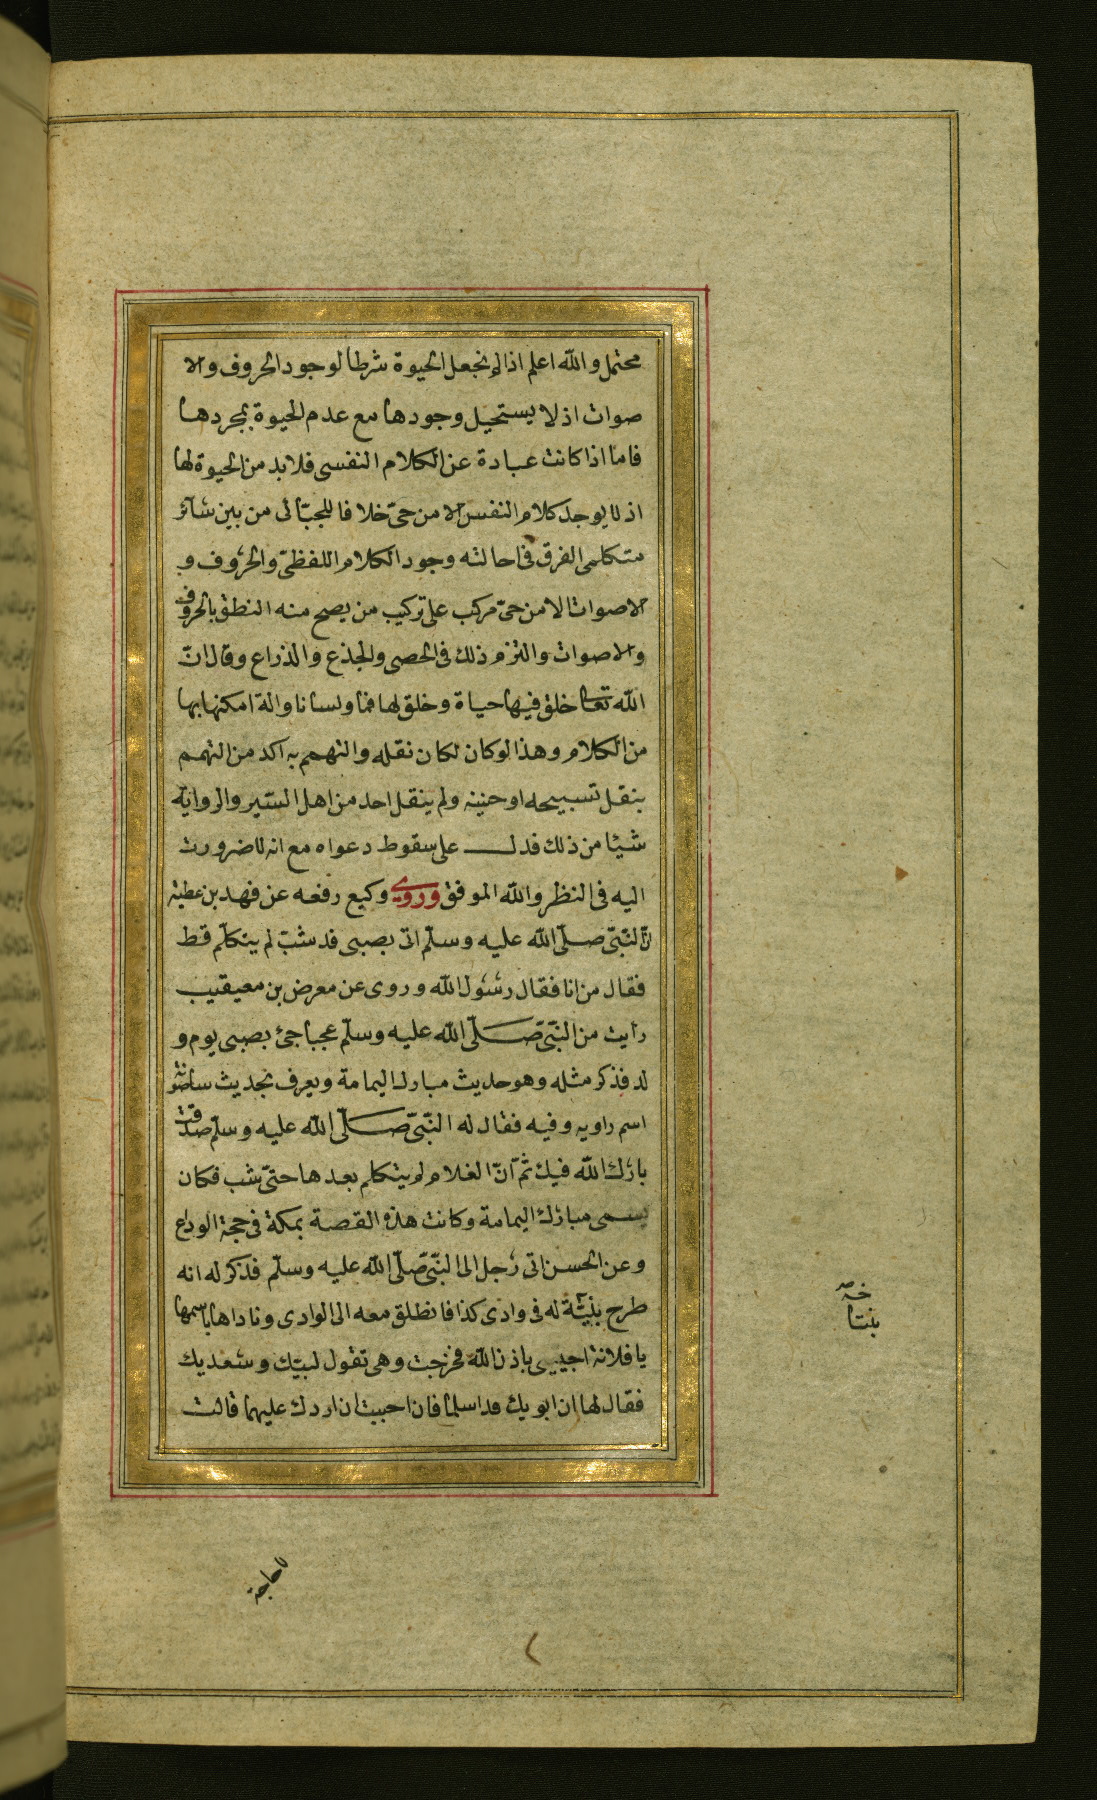 محتمل والله اعلم اذا لم نجعل الحيوة شرطا لوجود الحروف والا
صوات اذ لا يستحيل وجودها مع عدم الحيوة بمجردها
فاما اذا كانت عبادة عن الكلام النفسى فلا بد من الحيوة لها
اذ لا يوجد كلام النفس الا من حىّ خلافا للجبّائى من بين سائر
متكلمى الفرق فى احالته وجود الكلام اللفظىّ والحروف و
الاصوات الا من حىّ مركب على تركيب من يصح منه النطق بالحروف
والاصوات والتزم ذلك فى الحصى والجذع والذراع وقال انّ
الله تعالى خلق فيها حياة وخلق لها فما ولسانا والة امكنها بها
من الكلام وهذا لو كان لكان نقله والتهمم به اكد من التهمم
بنقل تسبيحه او حنينه ولم ينقل احد من اهل السّير والرواية
شيئا من ذلك فدل على سقوط دعواه مع انه لا ضرورت
اليه فى النظر والله الموفق وروى وكيع رفعه عن فهد بن عطية
انّ النّبىّ صلّى الله عليه وسلّم اتى بصبى قد شبّ لم يتكلّم قط
فقال من انا فقال رسول الله وروى عن معرض بن معيقيب
رأيت من النّبىّ صلّى الله عليه وسلّم عجبا جئ بصبى يوم و
لد فذكر مثله وهو حديث مبارك اليمامة ويعرف بحديث ساصونة
اسم راويه وفيه فقال له النّبىّ صلّى الله عليه وسلّم صدقت
بارك الله فيك ثمّ انّ الغلام لم يتكلم بعدها حتىّ شب فكان
يسمى مبارك اليمامة وكانت هذه القصة بمكة فى حجة الوداع
وعن الحسن اتى رجل الى النّبىّ صلّى الله عليه وسلّم فذكر له انه
طرح بنيّة له فى وادى كذا فانطلق معه الى الوادى وناداها باسمها
يا فلانة اجيبى باذن الله فخرجت وهى تقول لبيّك وسعديك
فقال لها ان ابويك قد اسلما فان احببت ان اردك عليهما قالت
بنتا
لا حاجة